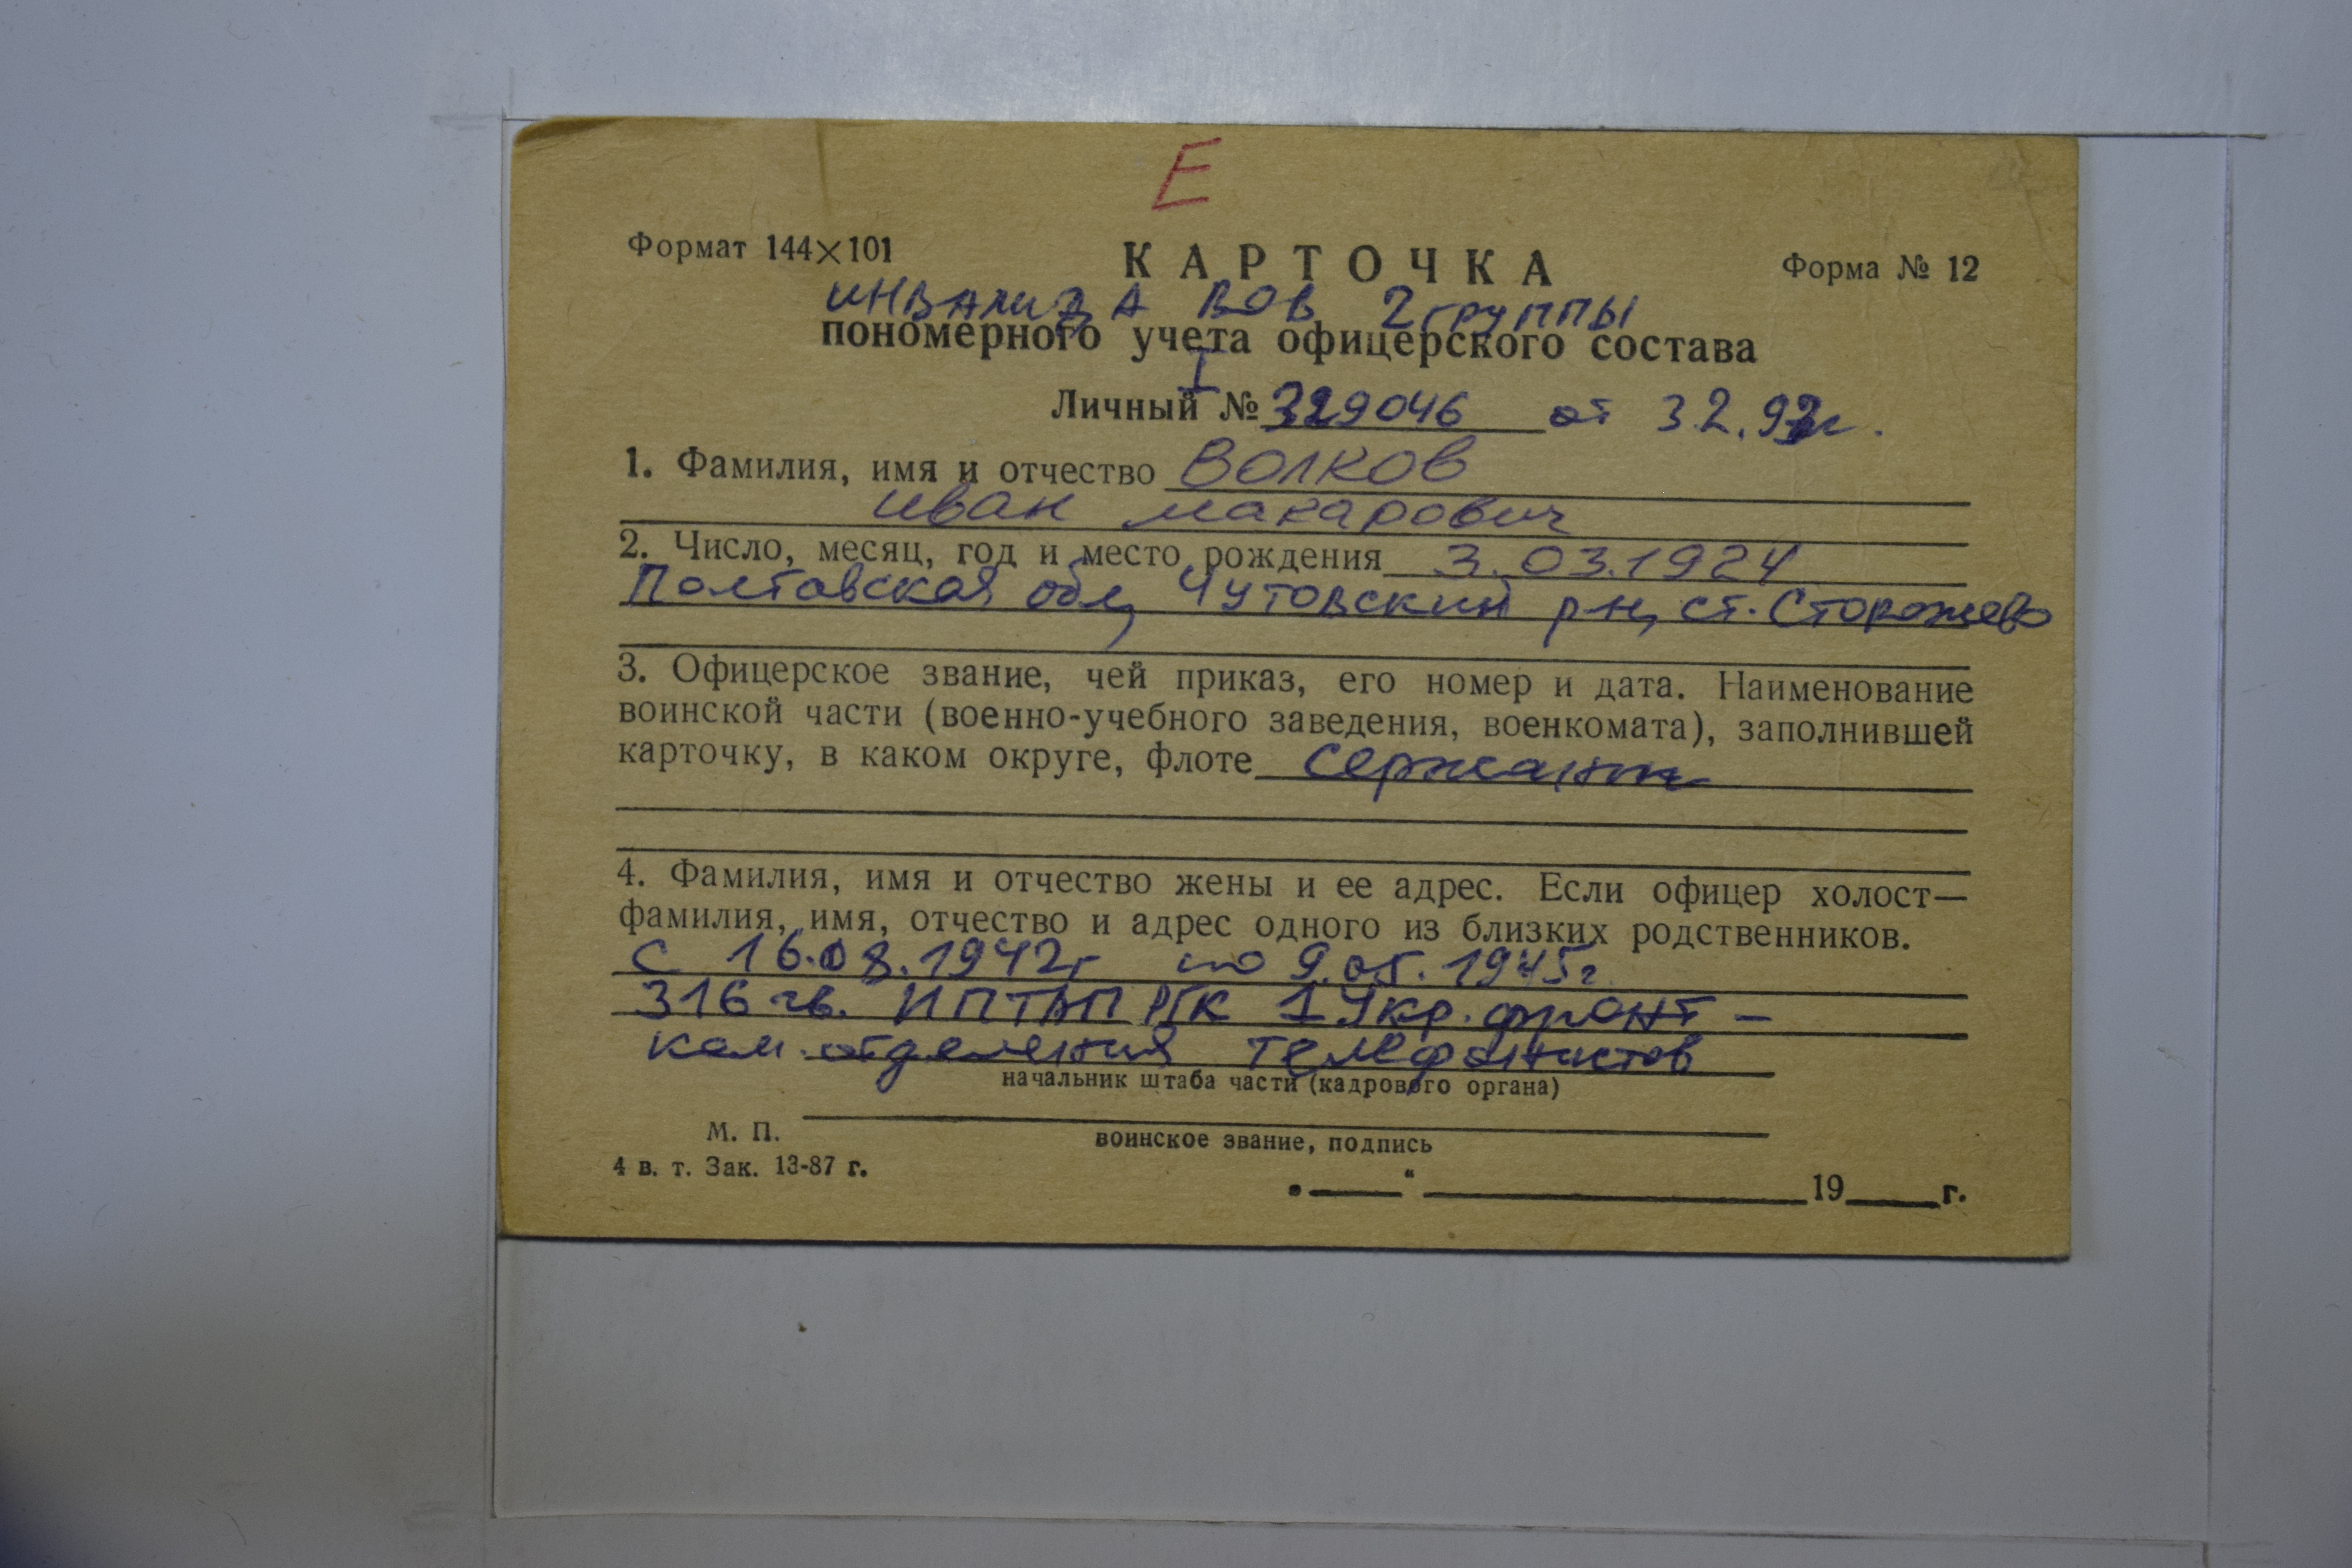 Е
Формат 144×101
КАРТОЧКА
Форма № 12
инвалида ВОВ 2 группы
пономерного учета офицерского состава
I
Личный № 329046 от 3.2.92г.
1. Фамилия, имя и отчество Волков
Иван Макарович
2. Число, месяц, год и место рождения 3.03.1924
Полтавская обл, Чутовский р-н, ст. Сторожево
3. Офицерское звание, чей приказ, его номер и дата. Наименование
воинской части (военно-учебного заведения, военкомата), заполнившей
карточку, в каком округе, флоте сержант
4. Фамилия, имя и отчество жены и ее адрес. Если офицер холост—
фамилия, имя, отчество и адрес одного из близких родственников.
с 16.08.1942г по 9.05.1945г
316 гв. ИПТАП РГК 1 Укр. фронт -
ком. отделения телефонистов
начальник штаба части (кадрового органа)
М. П.
воинское звание, подпись
4 в. т. Зак. 13-87 г.
„____“ ____________ 19____г.